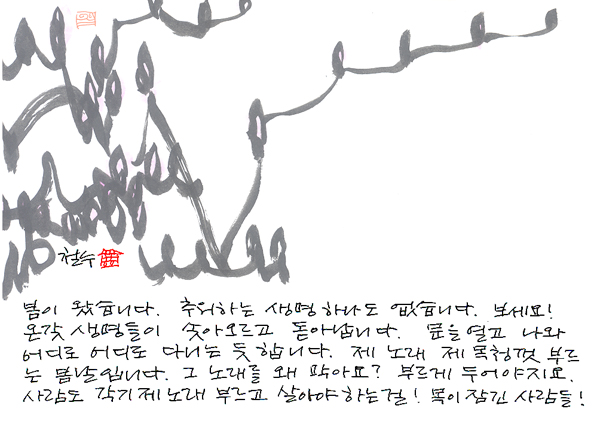 철수
봄이 왔습니다. 추워하는 생명 하나도 없습니다. 보세요!
온갖 생명들이 솟아오르고 돋아납니다. 문을 열고 나와
어디로 어디로 다니는 듯 합니다. 제 노래 제 목청껏 부르
는 봄날입니다. 그 노래를 왜 막아요? 부르게 두어야지요.
사람도 각기 제 노래 부르고 살아야 하는걸! 목이 잠긴 사람들!